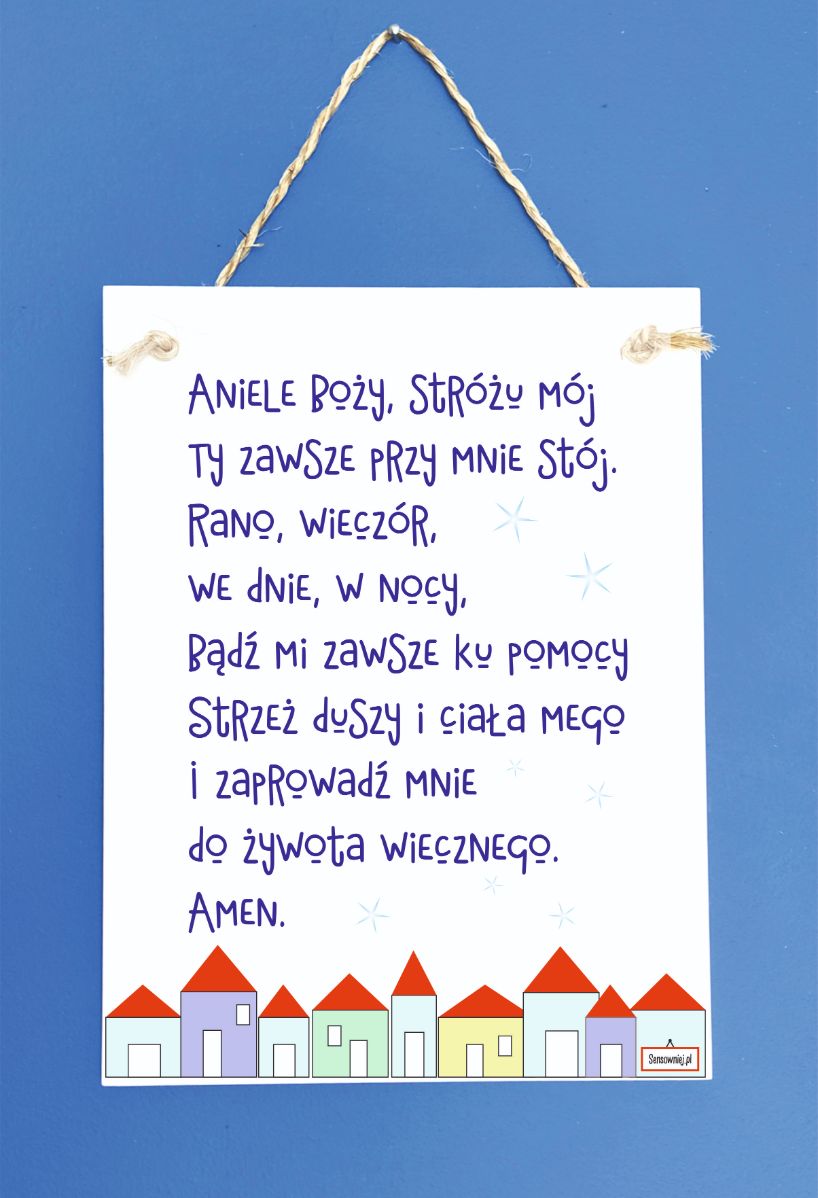 Aniele Boży, Stróżu mój
Ty zawsze przy mnie stój.
Rano, wieczór,
we dnie, w nocy,
Bądź mi zawsze ku pomocy
Strzeż duszy i ciała mego
i zaprowadź mnie
do żywota wiecznego.
Amen.
Sensowniej.pl